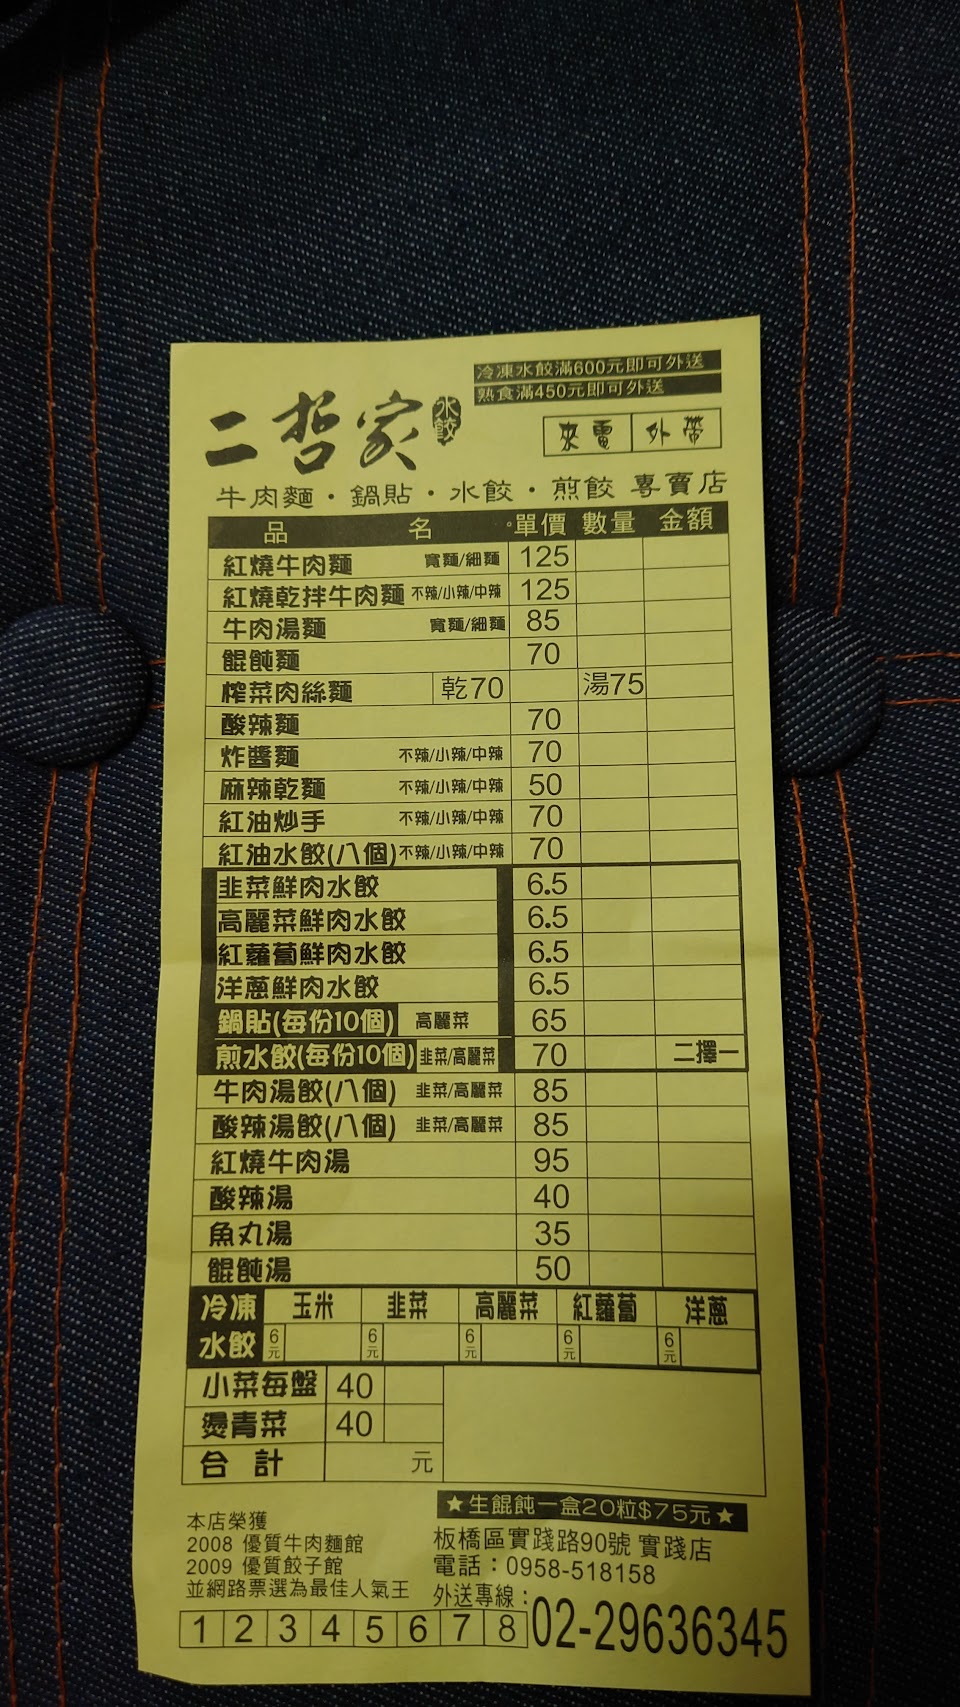 冷凍水餃滿600元即可外送
熟食滿450元即可外送
二哲家 水餃
來電 外帶
牛肉麵・鍋貼・水餃・煎餃 專賣店
品名 單價 數量 金額
紅燒牛肉麵 寬麵/細麵 125
紅燒乾拌牛肉麵 不辣/小辣/中辣 125
牛肉湯麵 寬麵/細麵 85
餛飩麵 70
榨菜肉絲麵 乾70 湯75
酸辣麵 70
炸醬麵 不辣/小辣/中辣 70
麻辣乾麵 不辣/小辣/中辣 50
紅油炒手 不辣/小辣/中辣 70
紅油水餃(八個) 不辣/小辣/中辣 70
韭菜鮮肉水餃 6.5
高麗菜鮮肉水餃 6.5
紅蘿蔔鮮肉水餃 6.5
洋蔥鮮肉水餃 6.5
鍋貼(每份10個) 高麗菜 65
煎水餃(每份10個) 韭菜/高麗菜 70 二擇一
牛肉湯餃(八個) 韭菜/高麗菜 85
酸辣湯餃(八個) 韭菜/高麗菜 85
紅燒牛肉湯 95
酸辣湯 40
魚丸湯 35
餛飩湯 50
冷凍水餃 玉米 韭菜 高麗菜 紅蘿蔔 洋蔥
6元 6元 6元 6元 6元
小菜每盤 40
燙青菜 40
合計 元
★生餛飩一盒20粒$75元★
本店榮獲
2008 優質牛肉麵館
2009 優質餃子館
並網路票選為最佳人氣王
板橋區實踐路90號 實踐店
電話：0958-518158
外送專線：02-29636345
1 2 3 4 5 6 7 8